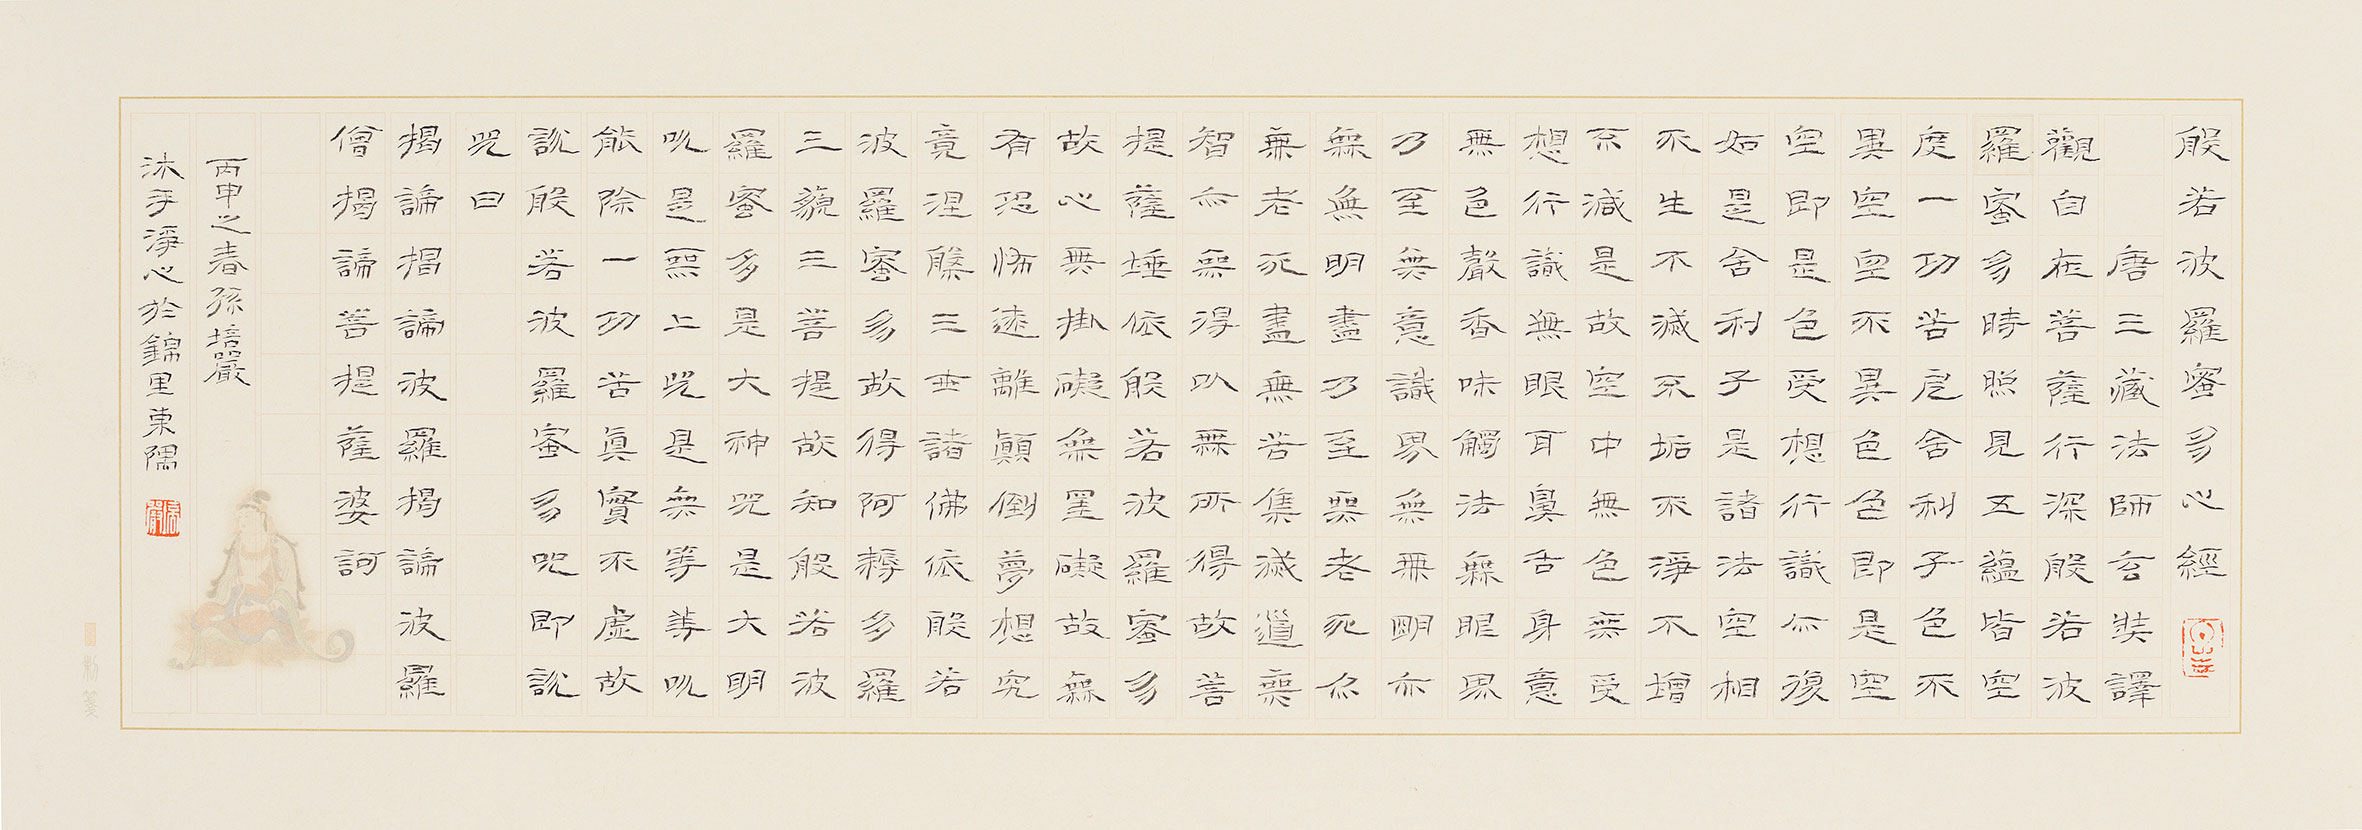 般若波羅蜜多心經
唐三藏法師玄奘譯
觀自在菩薩行深般若波
羅蜜多時照見五蘊皆空
度一切苦厄舍利子色不
異空空不異色色即是空
空即是色受想行識亦復
如是舍利子是諸法空相
不生不滅不垢不淨不增
不減是故空中無色無受
想行識無眼耳鼻舌身意
無色聲香味觸法無眼界
乃至無意識界無無明亦
無無明盡乃至無老死亦
無老死盡無苦集滅道無
智亦無得以無所得故菩
提薩埵依般若波羅蜜多
故心無掛礙無罣礙故無
有恐怖遠離顛倒夢想究
竟涅槃三世諸佛依般若
波羅蜜多故得阿耨多羅
三藐三菩提故知般若波
羅蜜多是大神咒是大明
咒是無上咒是無等等咒
能除一切苦真實不虛故
說般若波羅蜜多咒即說
咒曰
揭諦揭諦波羅揭諦波羅
僧揭諦菩提薩婆訶
丙申之春孫培嚴
沐手淨心於錦里東隅